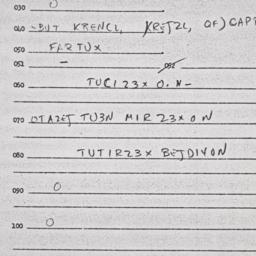 030 0
040 -BUT KRENCL, KRETZL, OF) CAPT
050 FARTUX
051 - 052
060 TUC123X O. N-
070 OTAZET TU3N MIR 23X O N
080 TUTIR23X BETDIVON
090 0
100 0